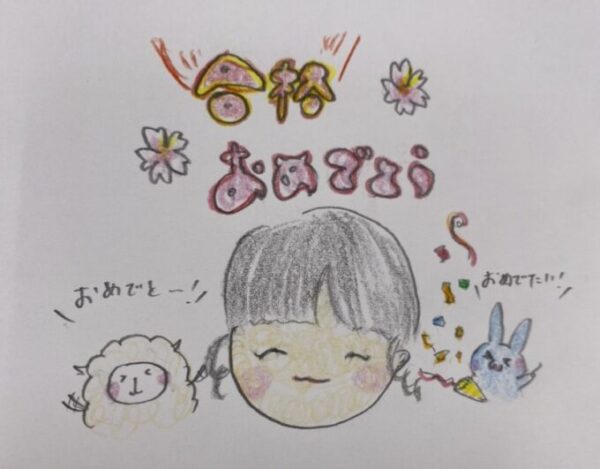 合格
おめでとう
おめでとー!
おめでたい!